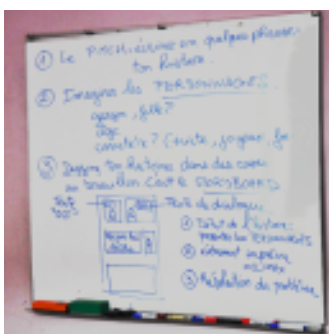 ① Le PITCH: écrire en quelques phrases
ton histoire.
② Imagine les PERSONNAGES.
garçon, fille?
âge
caractère? triste, joyeux,
③ Dessine ton histoire dans des cases
au brouillon C'est le STORYBOARD
Texte de dialogue
① Début de l'histoire:
② élément
③ Résolution du problème